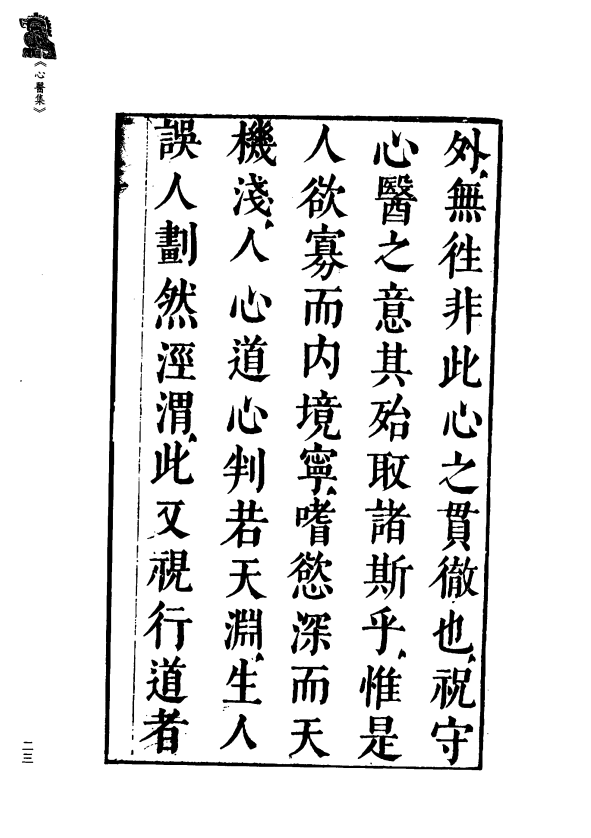 《心醫集》
外、無徃非此心之貫徹也、祝守
心醫之意其殆取諸斯乎、惟是
人欲寡而内境寧、嗜慾深而天
機淺、人心道心判若天淵、生人
誤人劃然涇渭、此又視行道者
二三